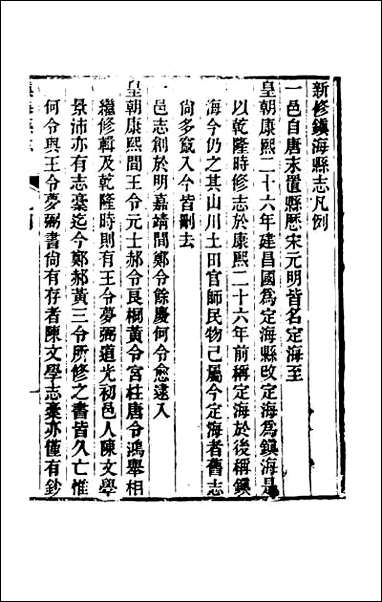 新修鎮海縣志凡例
一邑自唐末置縣歷宋元明皆名定海至
皇朝康熙二十六年建昌國為定海縣改定海為鎮海是
以乾隆時修志於康熙二十六年前稱定海於後稱鎮
海今仍之其山川土田官師民物已屬今定海者舊志
尙多竄入今皆刪去
一邑志創於明嘉靖間鄭令餘慶何令愈逮入
皇朝康熙間王令元士郝令良桐黃令宮柱唐令鴻舉相
繼修輯及乾隆時則有王令夢弼道光初邑人陳文學
景沛亦有志藁迄今鄭郝黃三令所修之書皆久亡惟
何令與王令夢弼書尙有存者陳文學志藁亦僅有鈔